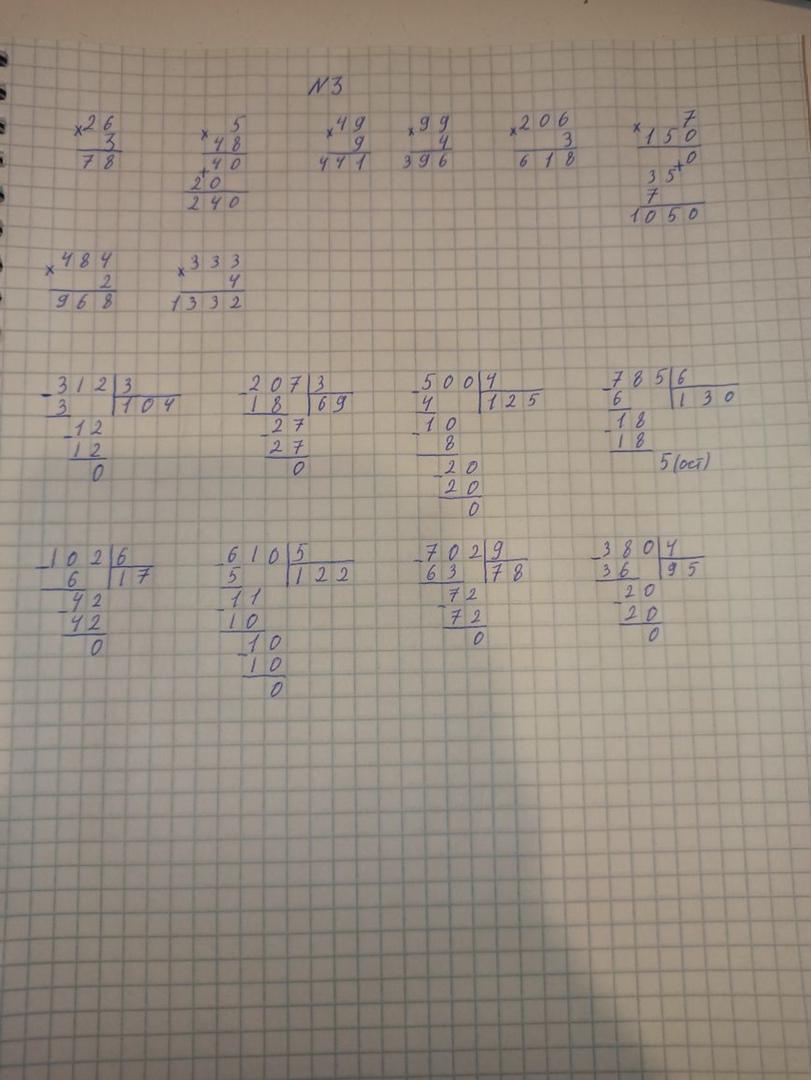 N3
26 5 49 99 206 7
× 3 × 48 × 9 × 4 × 3 × 150
78 40 441 396 618 0
+ 20 35 +
240 7
1050
484 333
× 2 × 4
968 1332
- 312 | 3 - 207 | 3 - 500 | 4 - 785 | 6
3 104 18 69 4 125 6 130
- 12 - 27 - 10 - 18
12 27 8 18
0 0 - 20 5 (ост)
20
0
- 102 | 6 - 610 | 5 - 702 | 9 - 380 | 4
6 17 5 122 63 78 36 95
- 42 - 11 - 72 - 20
42 10 72 20
0 - 10 0 0
10
0